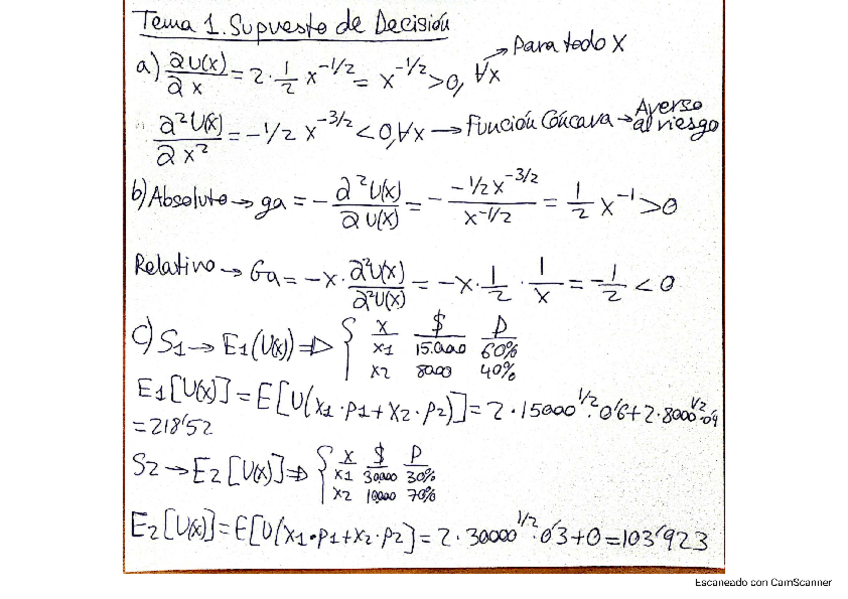 Tema 1. Supuesto de Decisión
a) ∂U(x)/∂x = 2·1/2 x^-1/2 = x^-1/2 > 0, ∀x → Para todo x
∂²U(x)/∂x² = -1/2 x^-3/2 < 0, ∀x → Función Cóncava → Averso al riesgo
b) Absoluto → ga = - ∂²U(x)/∂U(x) = - -1/2 x^-3/2 / x^-1/2 = 1/2 x^-1 > 0
Relativo → Ga = -x · ∂²U(x)/∂²U(x) = -x · 1/2 · 1/x = -1/2 < 0
c) S1 → E1(U(x)) ⇒ { x $ P
x1 15.000 60%
x2 8000 40%
E1[U(x)] = E[U(x1·p1+x2·p2)] = 2·15000^1/2·0'6+2·8000^1/2·0'4
= 218'52
S2 → E2[U(x)] ⇒ { x $ P
x1 30000 30%
x2 10000 70%
E2[U(x)] = E[U(x1·p1+x2·p2] = 2·30000^1/2·0'3+0 = 103'923
Escaneado con CamScanner